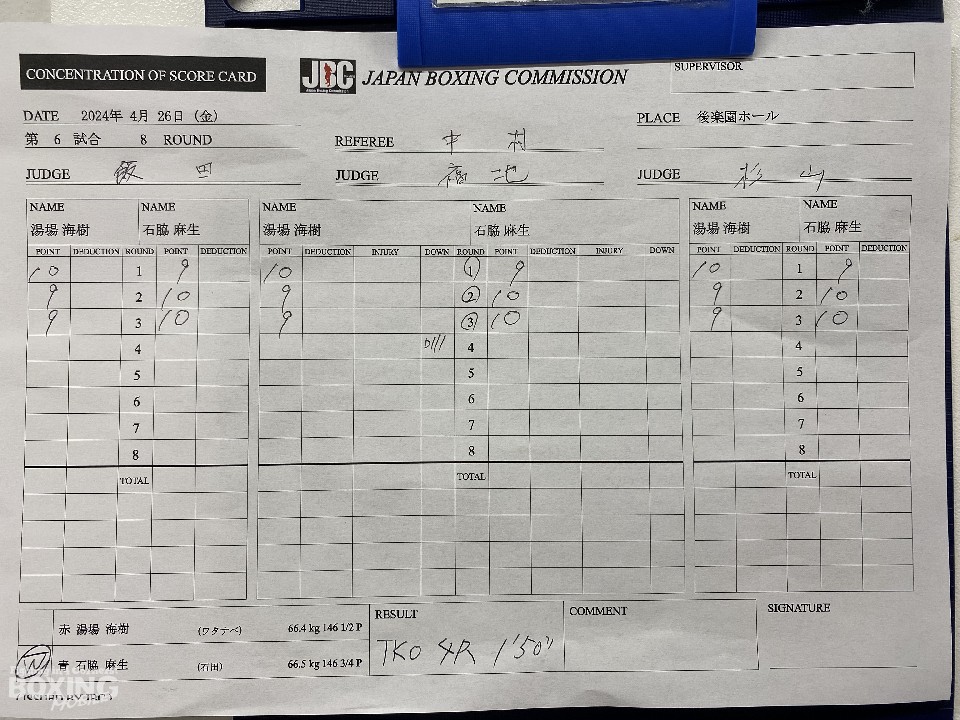 CONCENTRATION OF SCORE CARD
JBC JAPAN BOXING COMMISSION
SUPERVISOR
DATE 2024年 4月 26日 (金)
PLACE 後楽園ホール
第 6 試合 8 ROUND
REFEREE 中村
JUDGE 飯田 JUDGE 福地 JUDGE 杉山
NAME NAME NAME NAME NAME NAME
湯場 海樹 石脇 麻生 湯場 海樹 石脇 麻生 湯場 海樹 石脇 麻生
POINT DEDUCTION ROUND POINT DEDUCTION POINT DEDUCTION INJURY DOWN ROUND POINT DEDUCTION INJURY DOWN POINT DEDUCTION ROUND POINT DEDUCTION
10 1 9 10 1 9 10 1 9
9 2 10 9 2 10 9 2 10
9 3 10 9 3 10 9 3 10
4 4 4
5 5 5
6 6 6
7 7 7
8 8 8
TOTAL TOTAL TOTAL
赤 湯場 海樹 (ワタナベ) 66.4 kg 146 1/2 P
青 石脇 麻生 (石田) 66.5 kg 146 3/4 P
RESULT
TKO 4R 1'50"
COMMENT
SIGNATURE
BOXING
Mobile